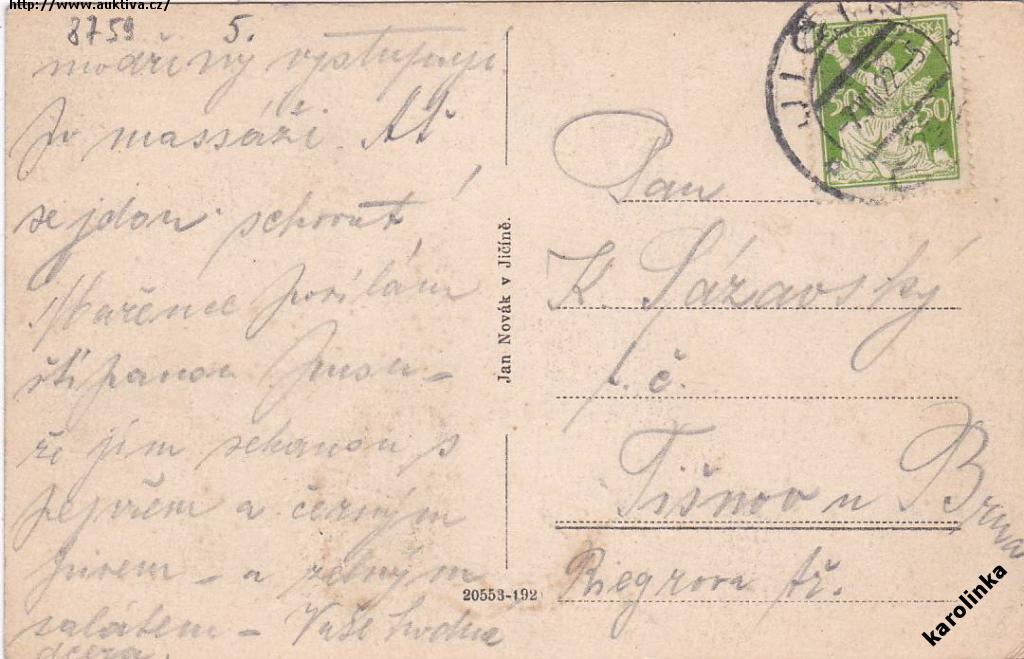 http://www.auktiva.cz/
8759 5.
modřiny vystupují
po massáži. Ať
se jdou schovat
Mařence posílám
štípanou pusu -
že jím sekanou s
pepřem a černým
pivem - a zelným
salátem - Vaše hodná
dcera.
Jan Novák v Jičíně.
20553-192
JIČÍN
22-5
ČESKOSLOVENSKÁ
50 50
Pan
K. Sázavský
č.
Tišnov u Brna
Riegrova tř.
karolinka